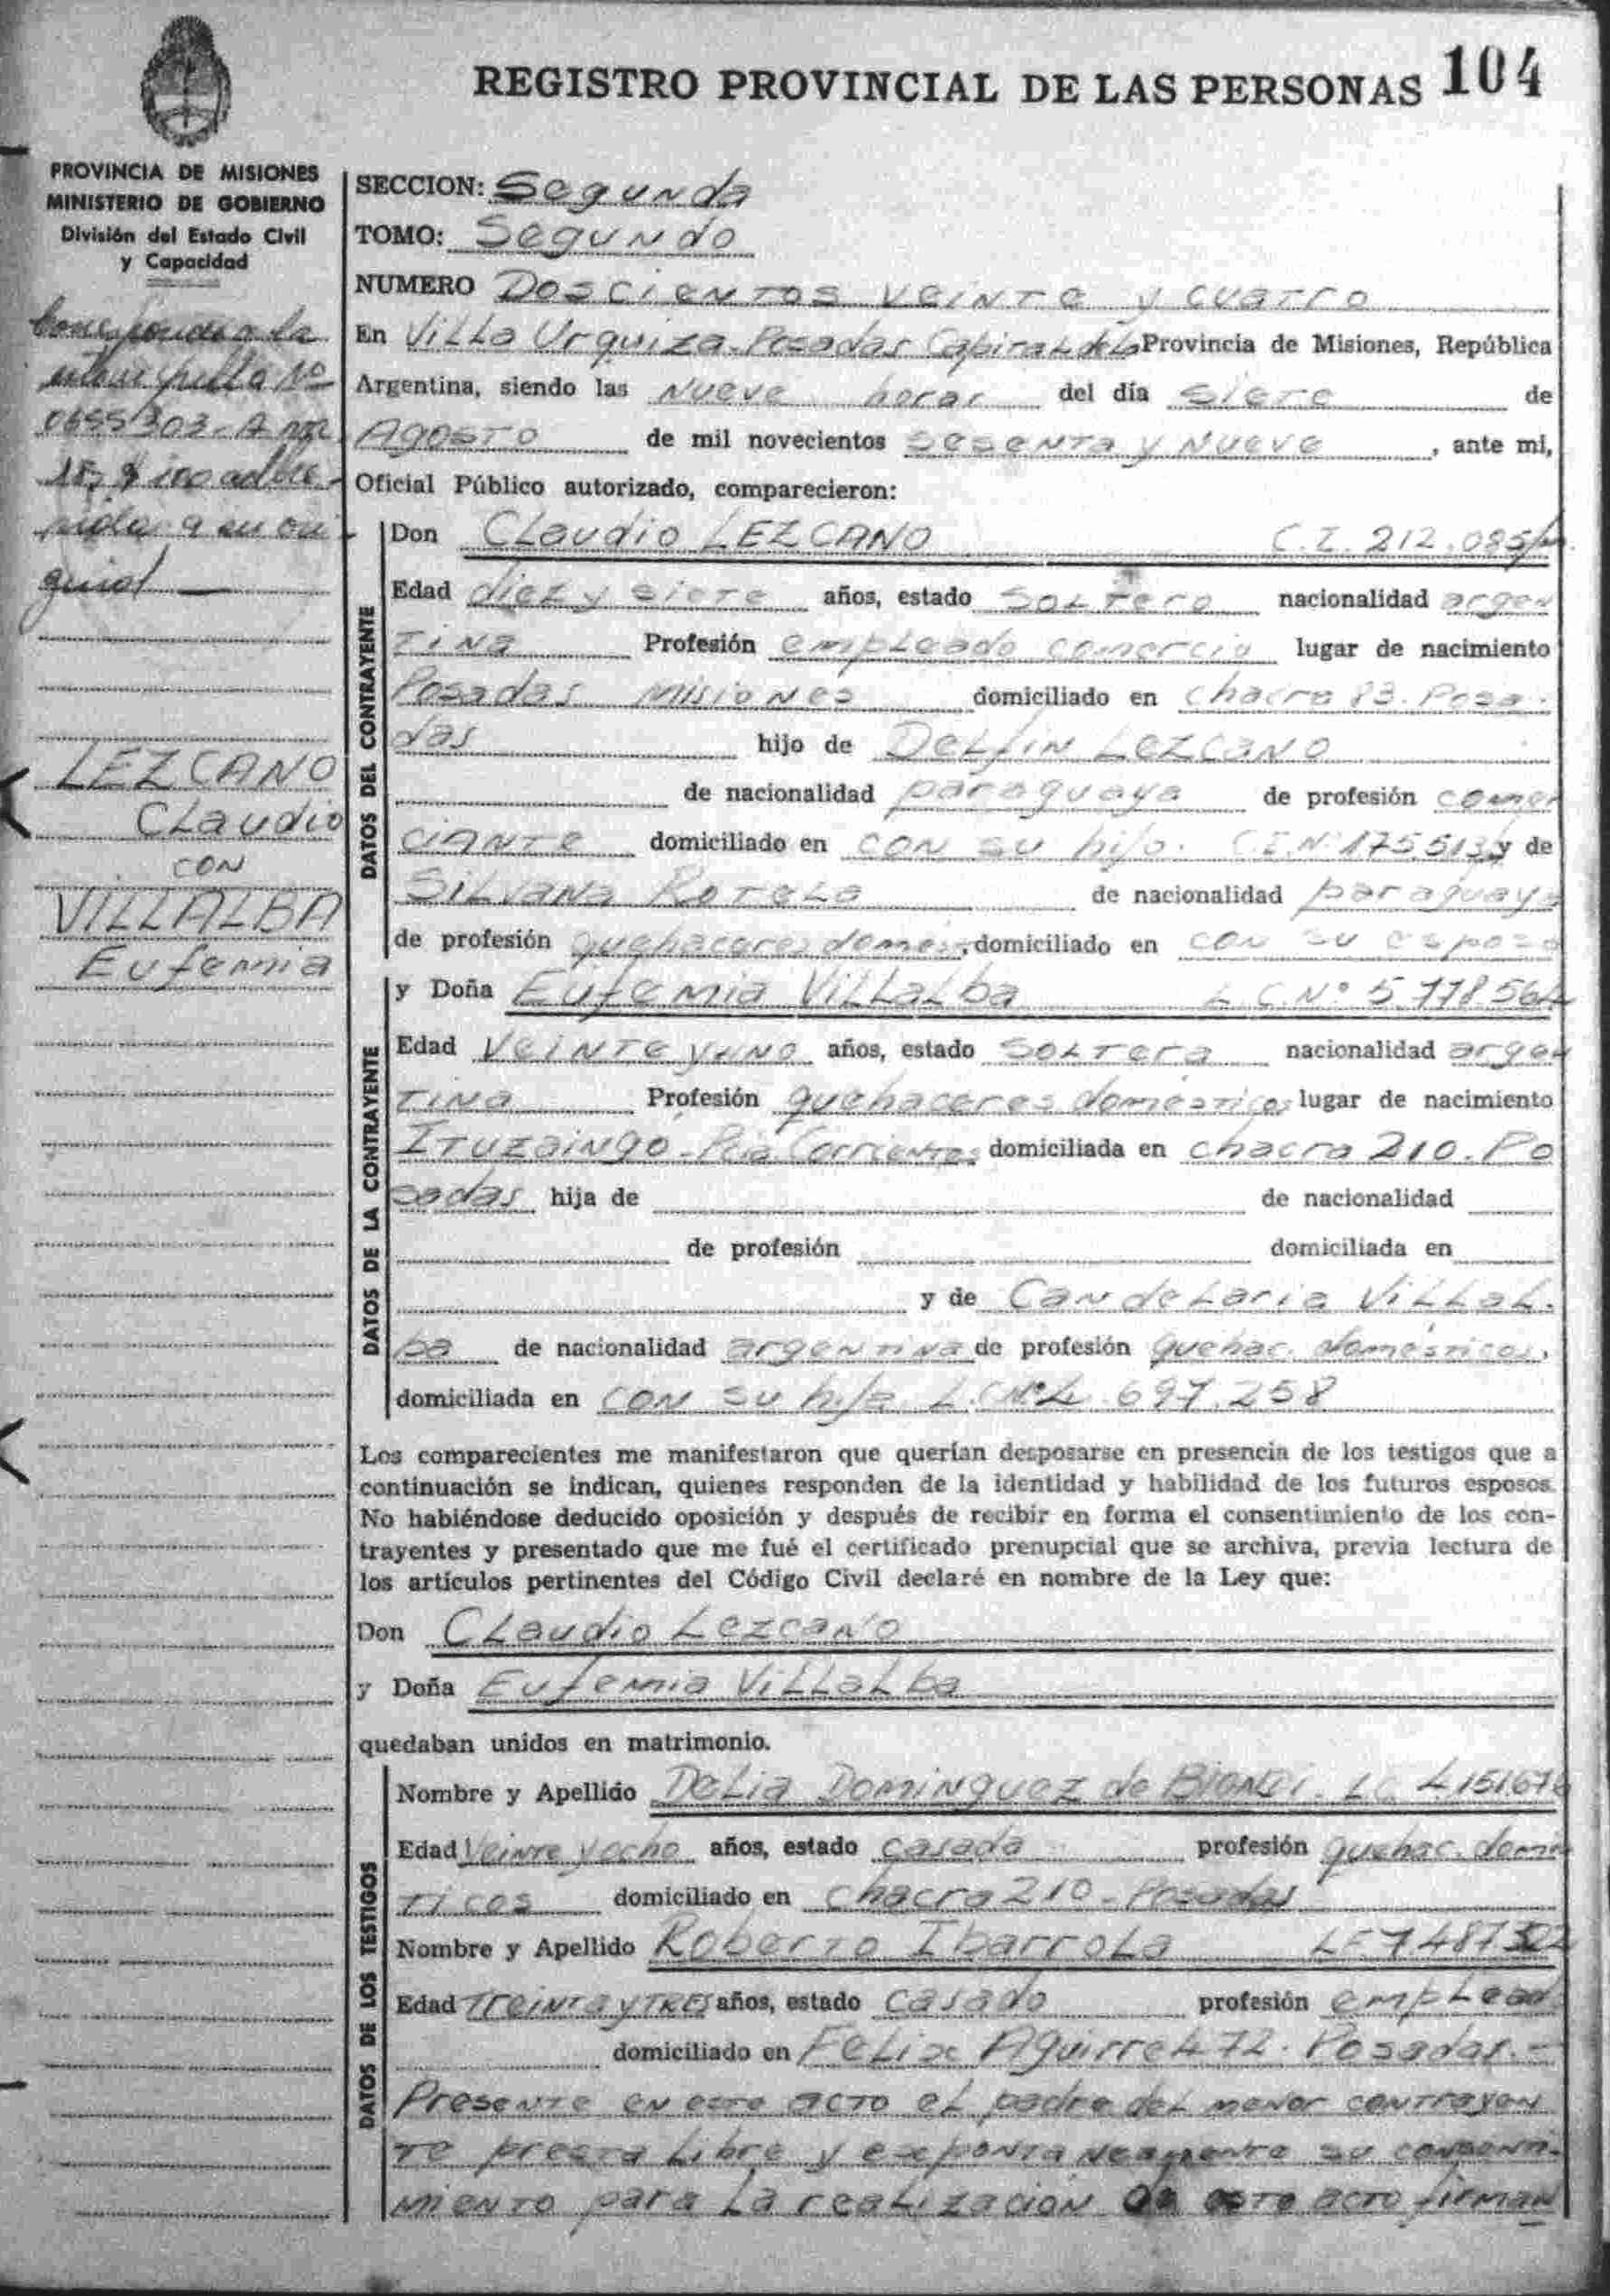 REGISTRO PROVINCIAL DE LAS PERSONAS 104
PROVINCIA DE MISIONES
MINISTERIO DE GOBIERNO
División del Estado Civil
y Capacidad
Corresponde a la
Nº
0655303-A
LEZCANO
Claudio
CON
VILLALBA
Eufemia
SECCION: Segunda
TOMO: Segundo
NUMERO Doscientos veinte y cuatro
En Villa Urquiza-Posadas Capital de la Provincia de Misiones, República
Argentina, siendo las nueve horas del día siete de
Agosto de mil novecientos sesenta y nueve, ante mi,
Oficial Público autorizado, comparecieron:
DATOS DEL CONTRAYENTE
Don Claudio LEZCANO C.I. 212.085
Edad diez y siete años, estado soltero nacionalidad argen
tina Profesión empleado comercio lugar de nacimiento
Posadas Misiones domiciliado en chacra 83. Posa-
das hijo de Delfin Lezcano
de nacionalidad paraguaya de profesión comer
ciante domiciliado en con su hijo. C.I.Nº 175.513 y de
Silvana Rotela de nacionalidad paraguaya
de profesión quehaceres domés, domiciliado en con su esposo
DATOS DE LA CONTRAYENTE
y Doña Eufemia Villalba L.C.Nº 5.778.564
Edad veinte y uno años, estado soltera nacionalidad argen
tina Profesión quehaceres domésticos lugar de nacimiento
Ituzaingó-Pcia. Corrientes domiciliada en chacra 210. Po
sadas hija de de nacionalidad
de profesión domiciliada en
y de Candelaria Villal-
ba de nacionalidad argentina de profesión quehac. domésticos,
domiciliada en con su hija L.C.Nº 4.697.258
Los comparecientes me manifestaron que querían desposarse en presencia de los testigos que a
continuación se indican, quienes responden de la identidad y habilidad de los futuros esposos.
No habiéndose deducido oposición y después de recibir en forma el consentimiento de los con-
trayentes y presentado que me fué el certificado prenupcial que se archiva, previa lectura de
los artículos pertinentes del Código Civil declaré en nombre de la Ley que:
Don Claudio Lezcano
y Doña Eufemia Villalba
quedaban unidos en matrimonio.
DATOS DE LOS TESTIGOS
Nombre y Apellido Delia Dominguez de Biondi. LC 4.151.676
Edad veinte y ocho años, estado casada profesión quehac. domés
ticos domiciliado en chacra 210-Posadas
Nombre y Apellido Roberto Ibarrola LE
Edad treinta y tres años, estado casado profesión emplead
domiciliado en Felix Aguirre 472. Posadas.-
Presente en este acto el padre del menor contrayen
te presta libre y exponta neamente su consenti-
miento para la realización de este acto firman